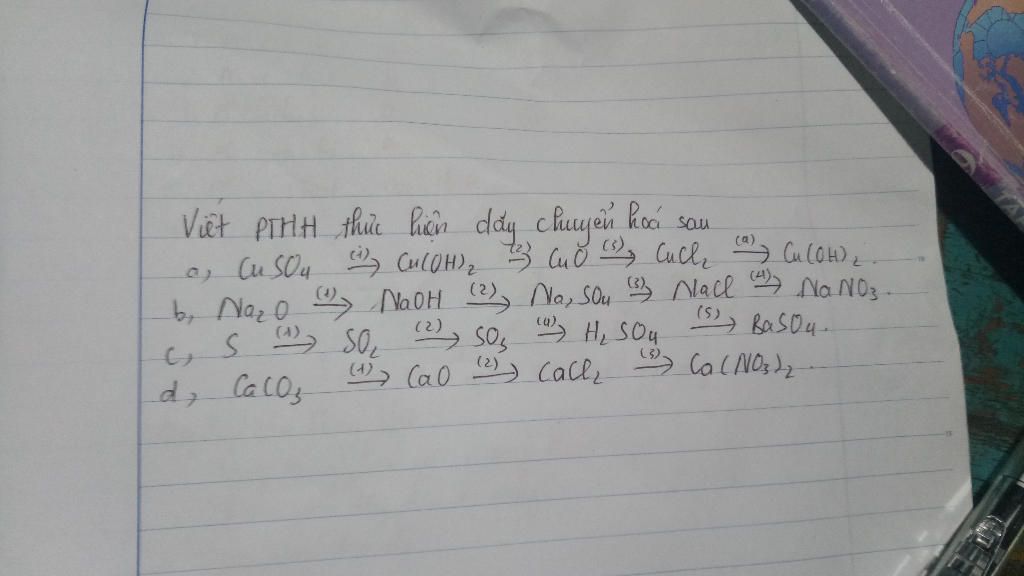 Viết PTHH thực hiện dãy chuyển hoá sau
a, CuSO4 (1)→ Cu(OH)2 (2)→ CuO (3)→ CuCl2 (4)→ Cu(OH)2.
b, Na2O (1)→ NaOH (2)→ Na2SO4 (3)→ NaCl (4)→ NaNO3.
c, S (1)→ SO2 (2)→ SO3 (4)→ H2SO4 (5)→ BaSO4.
d, CaCO3 (1)→ CaO (2)→ CaCl2 (3)→ Ca(NO3)2.